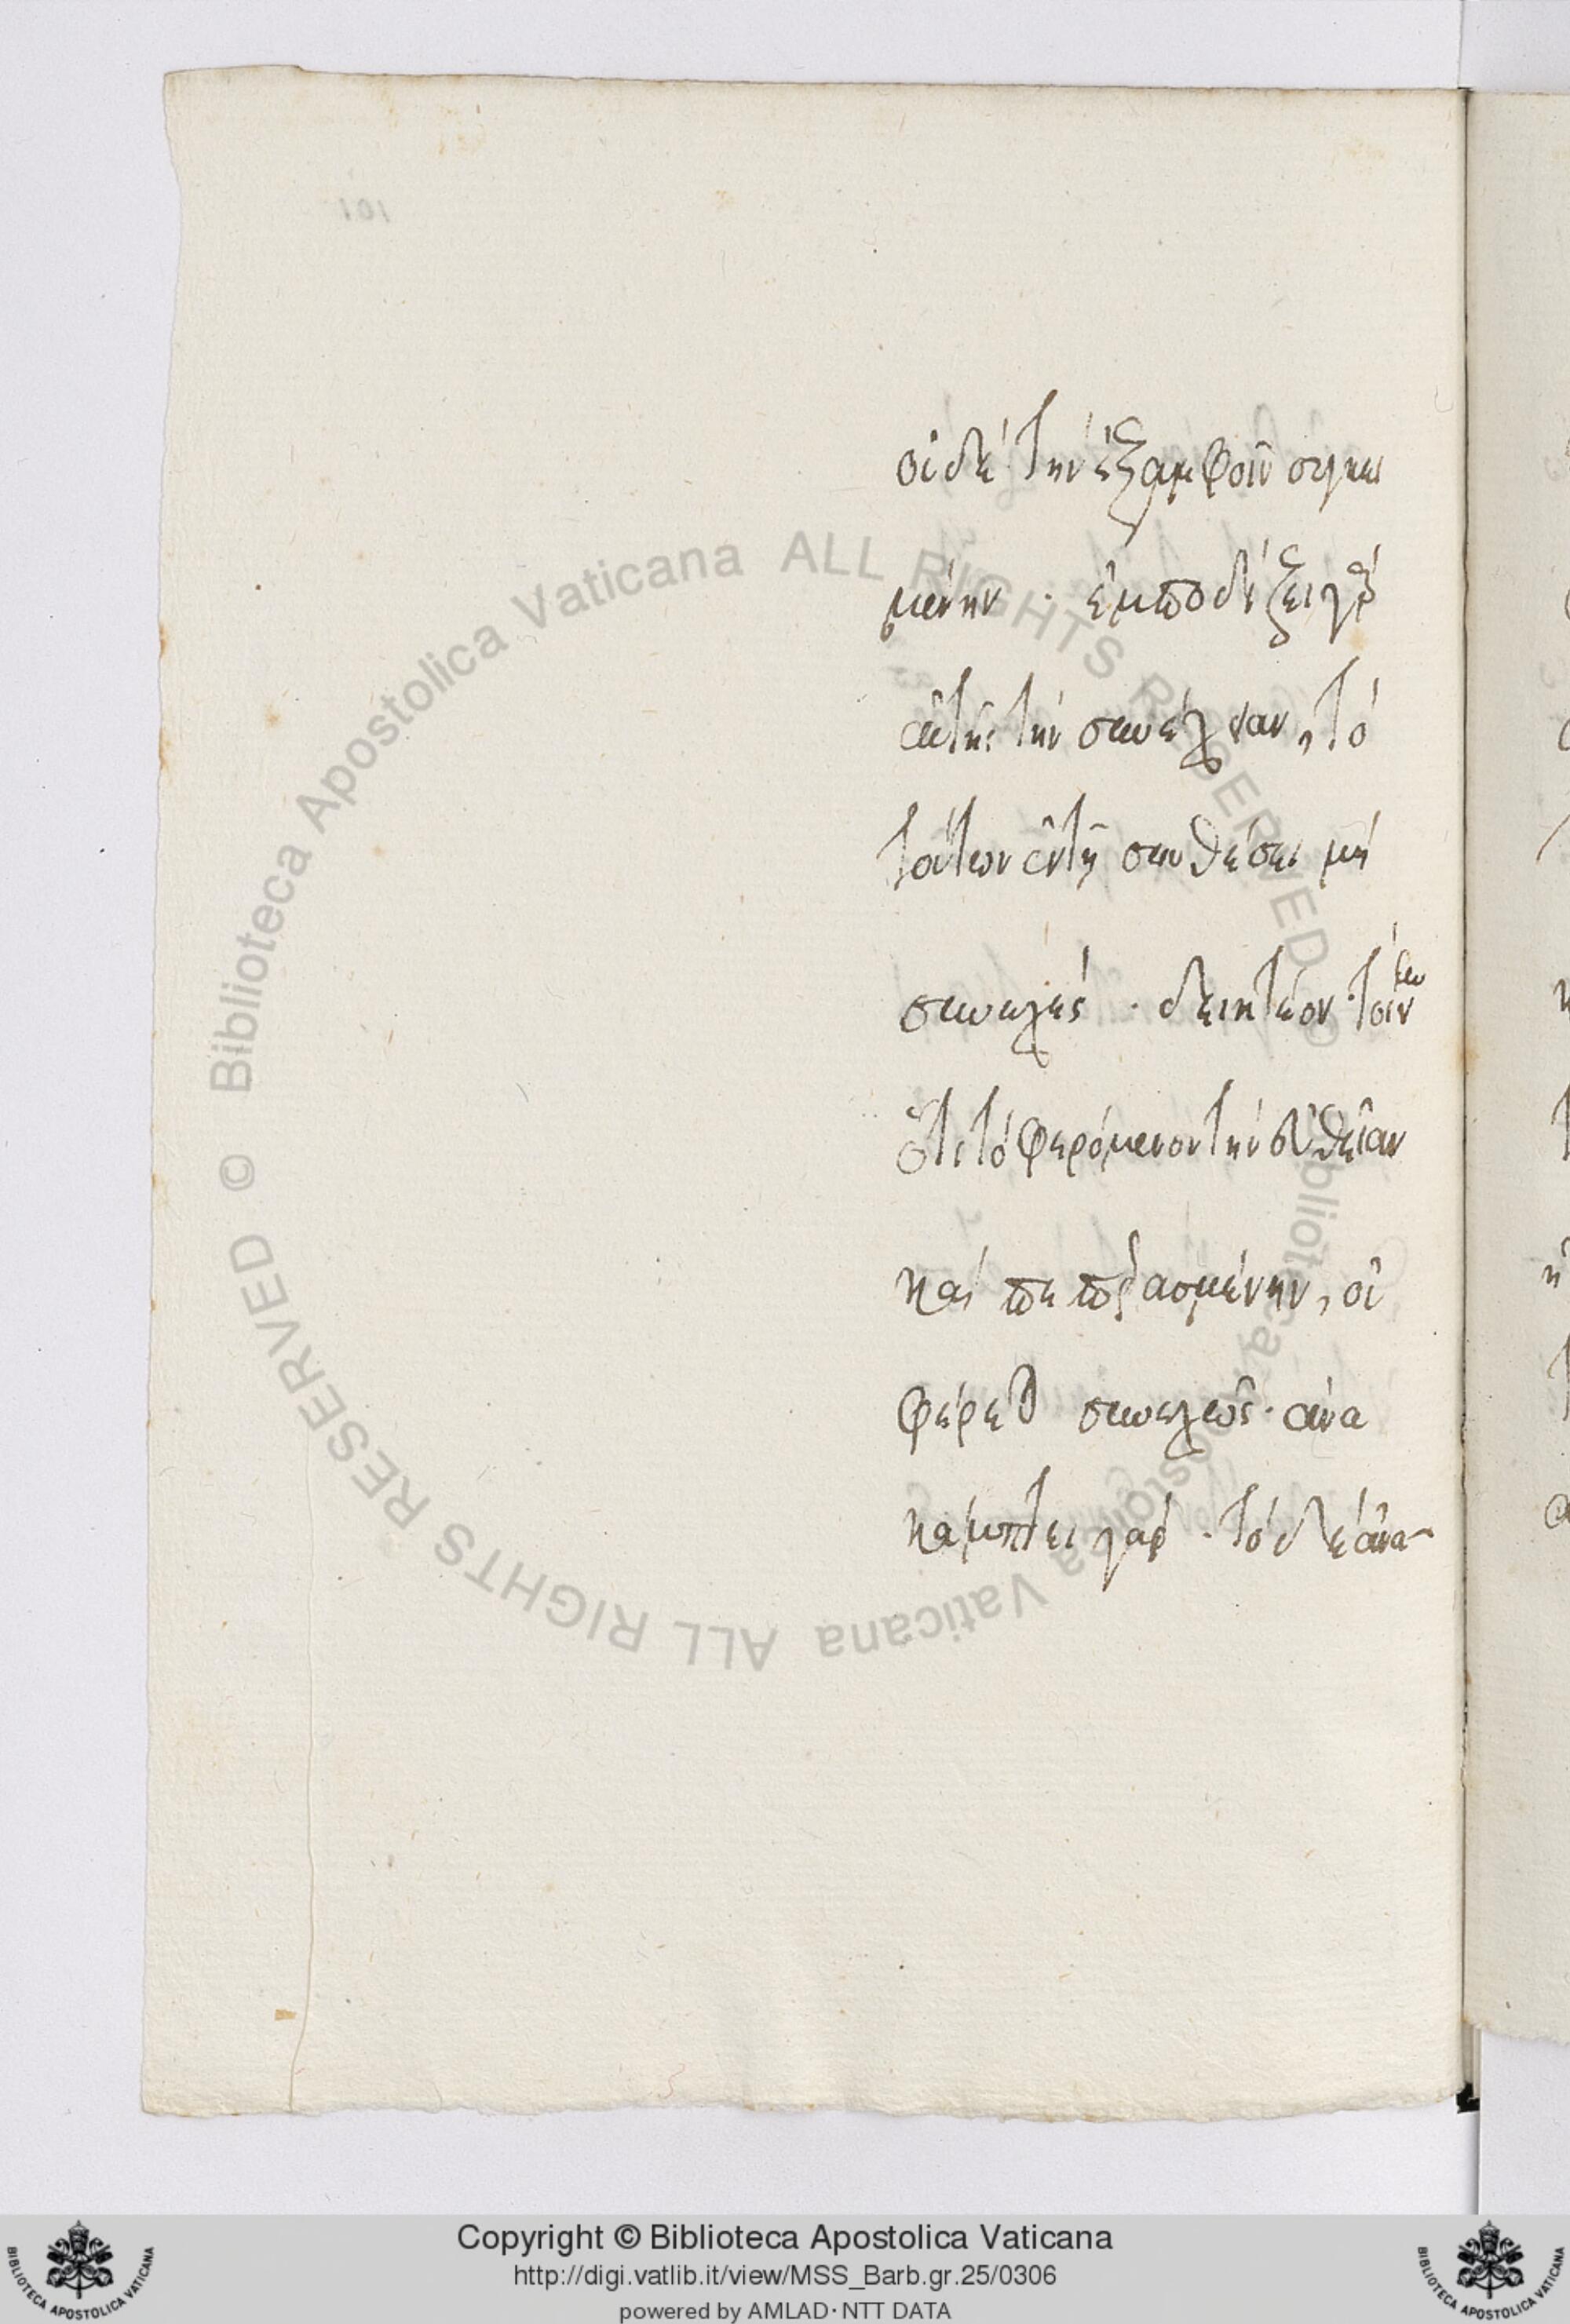 101
οὐδὲ τὴν ἐξ ἀμφοῖν συγκει
μένην · ἐμποδίζει γὰρ
αὐτῆς τὴν συνέχειαν, τὸ
τούτων ἐν τῇ συνθέσει μὴ
συνεχές · δεικτέον τοίνυν
ὅτι τὸ φερόμενον τὴν εὐθεῖαν
καὶ πεπερασμένην, οὐ
φέρεται συνεχῶς · ἀνα
κάμπτει γάρ · τὸ δὲ ἀνα-
© Biblioteca Apostolica Vaticana ALL RIGHTS RESERVED
© Biblioteca Apostolica Vaticana ALL RIGHTS RESERVED
Copyright © Biblioteca Apostolica Vaticana
http://digi.vatlib.it/view/MSS_Barb.gr.25/0306
powered by AMLAD · NTT DATA
BIBLIOTECA APOSTOLICA VATICANA
BIBLIOTECA APOSTOLICA VATICANA